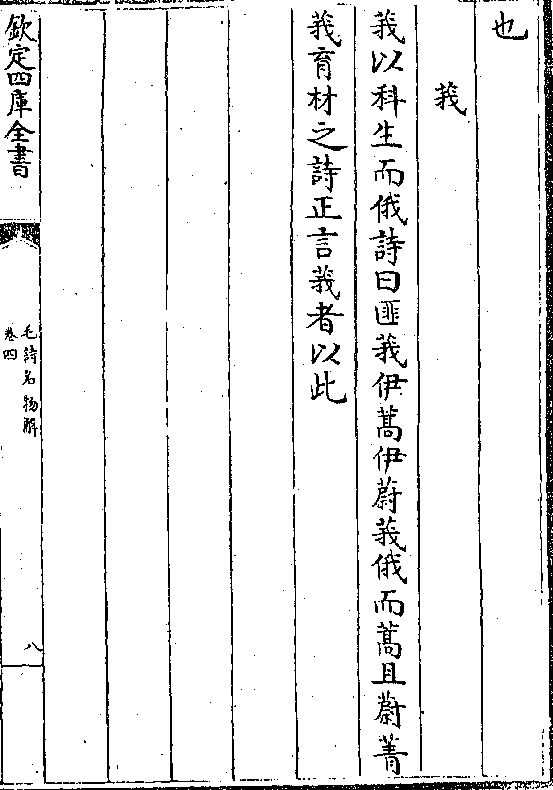 也
莪
莪以科生而俄詩曰匪莪伊蒿伊蔚莪俄而蒿且蔚菁
莪育材之詩正言莪者以此
欽定四庫全書
毛詩名物解
卷四
八